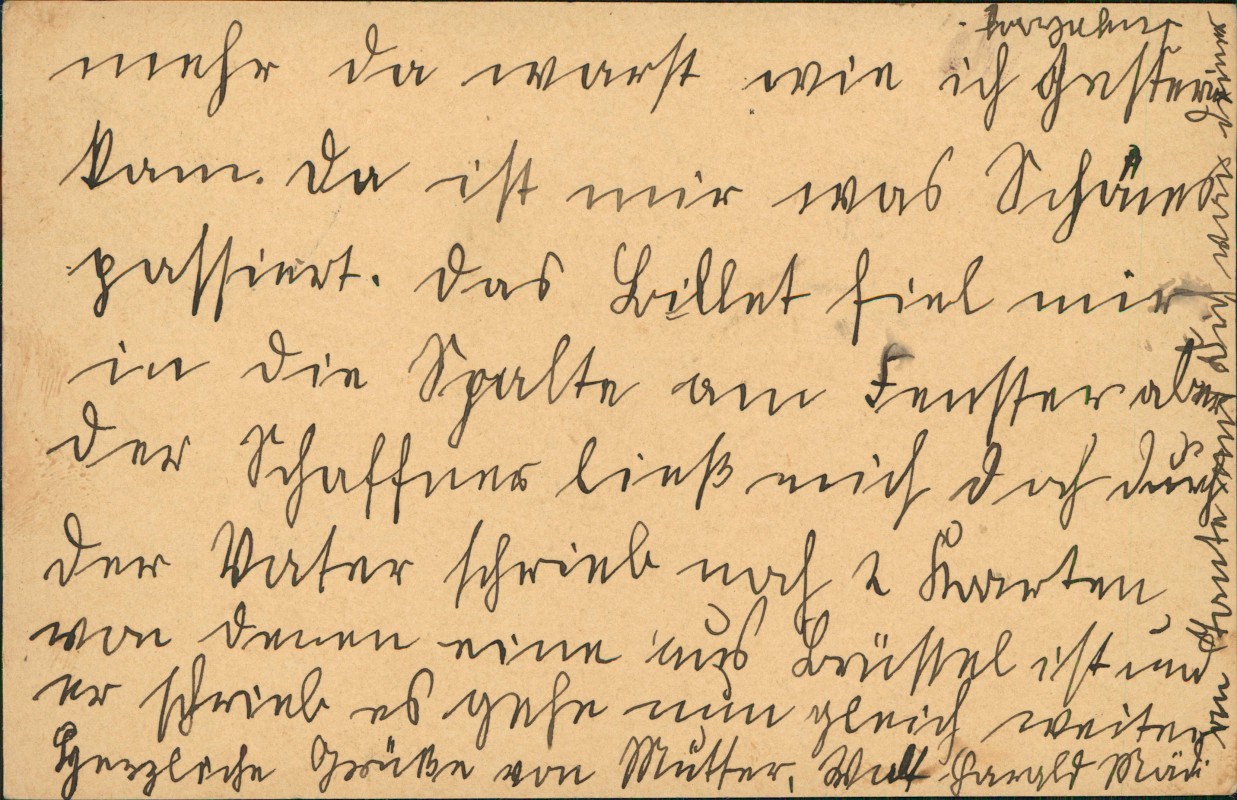 mehr da warst wie ich gestern
kam. Da ist mir was Schönes
passiert. Das Billet fiel mir
in die Spalte am Fenster aber
der Schaffner ließ mich doch durch
der Vater schrieb noch 2 Karten
von denen eine aus Brüssel ist und
er schrieb es gehe nun gleich weiter
Herzliche Grüße von Mutter, Wulf Harald Mädi